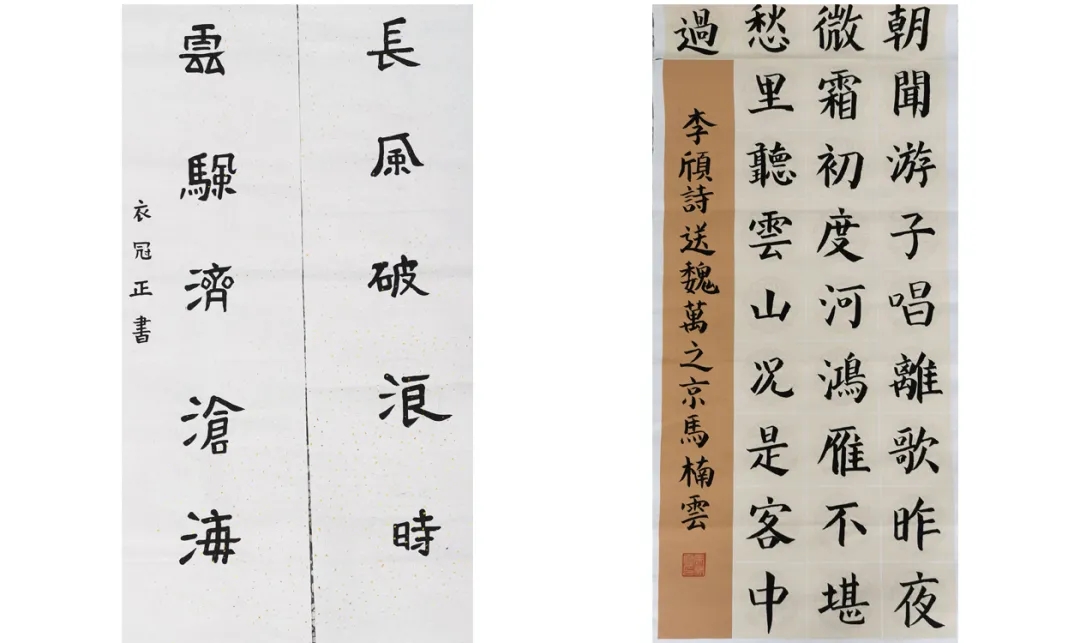 長風破浪時
雲颿濟滄海
衣冠正書
朝聞游子唱離歌昨夜
微霜初度河鴻雁不堪
愁里聽雲山况是客中
過
李頎詩送魏萬之京馬楠雲